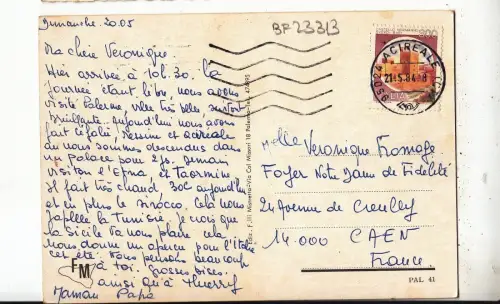 Dimanche 20.05
BF23313
Ma chère Véronique.
Hier arrivée à 10h.30. La
journée étant libre, nous avons
visité Palerme, ville très belle, surtout
bruillante. aujourd'hui nous avons
fait Céfalu, Messine et acireale
où nous sommes descendus dans
un palace pour 2 js. demain
visiton l'Etna, et Taormin
il fait très chaud 30c aujourd'hui
et en plus le sirocco. Cela nous
rapelle la Tunisie, je crois que
la Sicile va nous plaire cela
nous donne un aperçu pour l'Italie
cet été. Nous pensons beaucoup
à toi. grosses bises.
ainsi qu'à Thierry
Maman Papa
FM
Ediz. F.lli Minardo - Via Col. Missori 18 Palermo - Tel.
95024 ACIREALE (CT)
21.5.84-18
Melle Véronique Fromage
Foyer Notre Dame de Fidélité
24 Avenue de Creully
14.000 CAEN
France
PAL 41